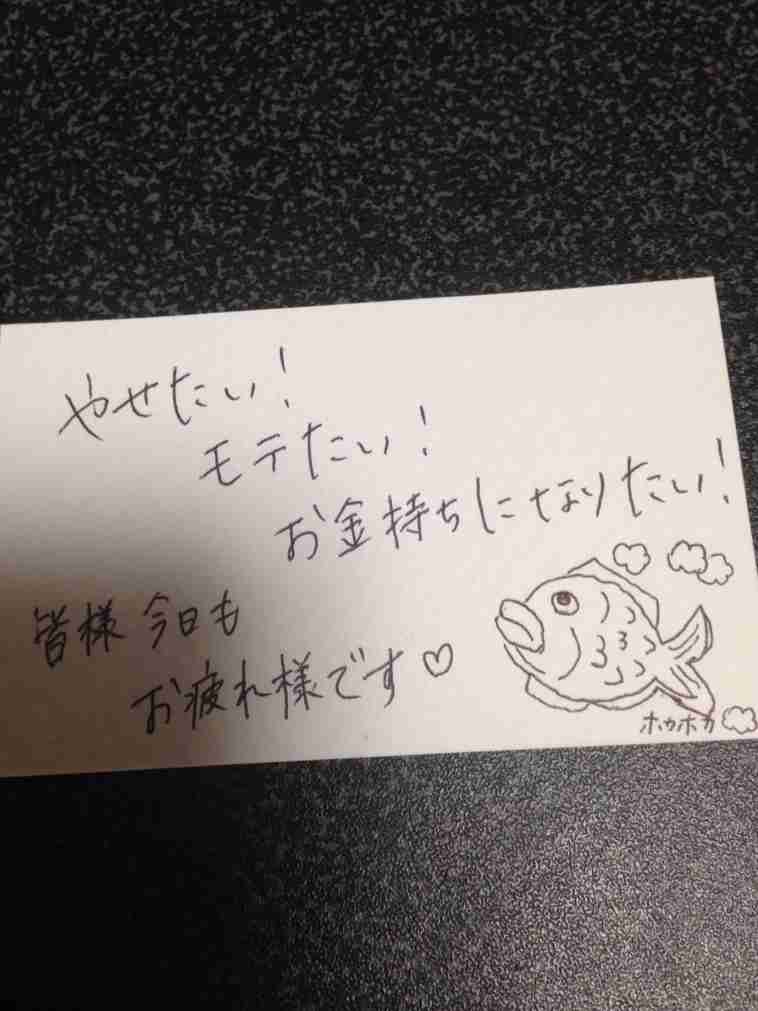 やせたい!
モテたい!
お金持ちになりたい!
皆様 今日も
お疲れ様です♡
ホカホカ